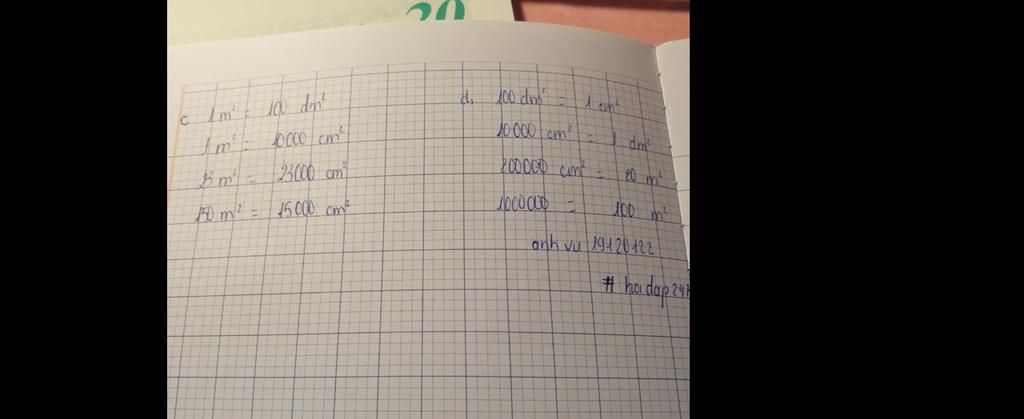 20
c 1 m² = 100 dm²
1 m² = 10000 cm²
23 m² = 23000 cm²
150 m² = 15000 cm²
d, 100 dm² = 1 cm²
10000 cm² = 1 dm²
200000 cm² = 20 m²
1000000 = 100 m²
anh vu 19120122
# hoidap24h